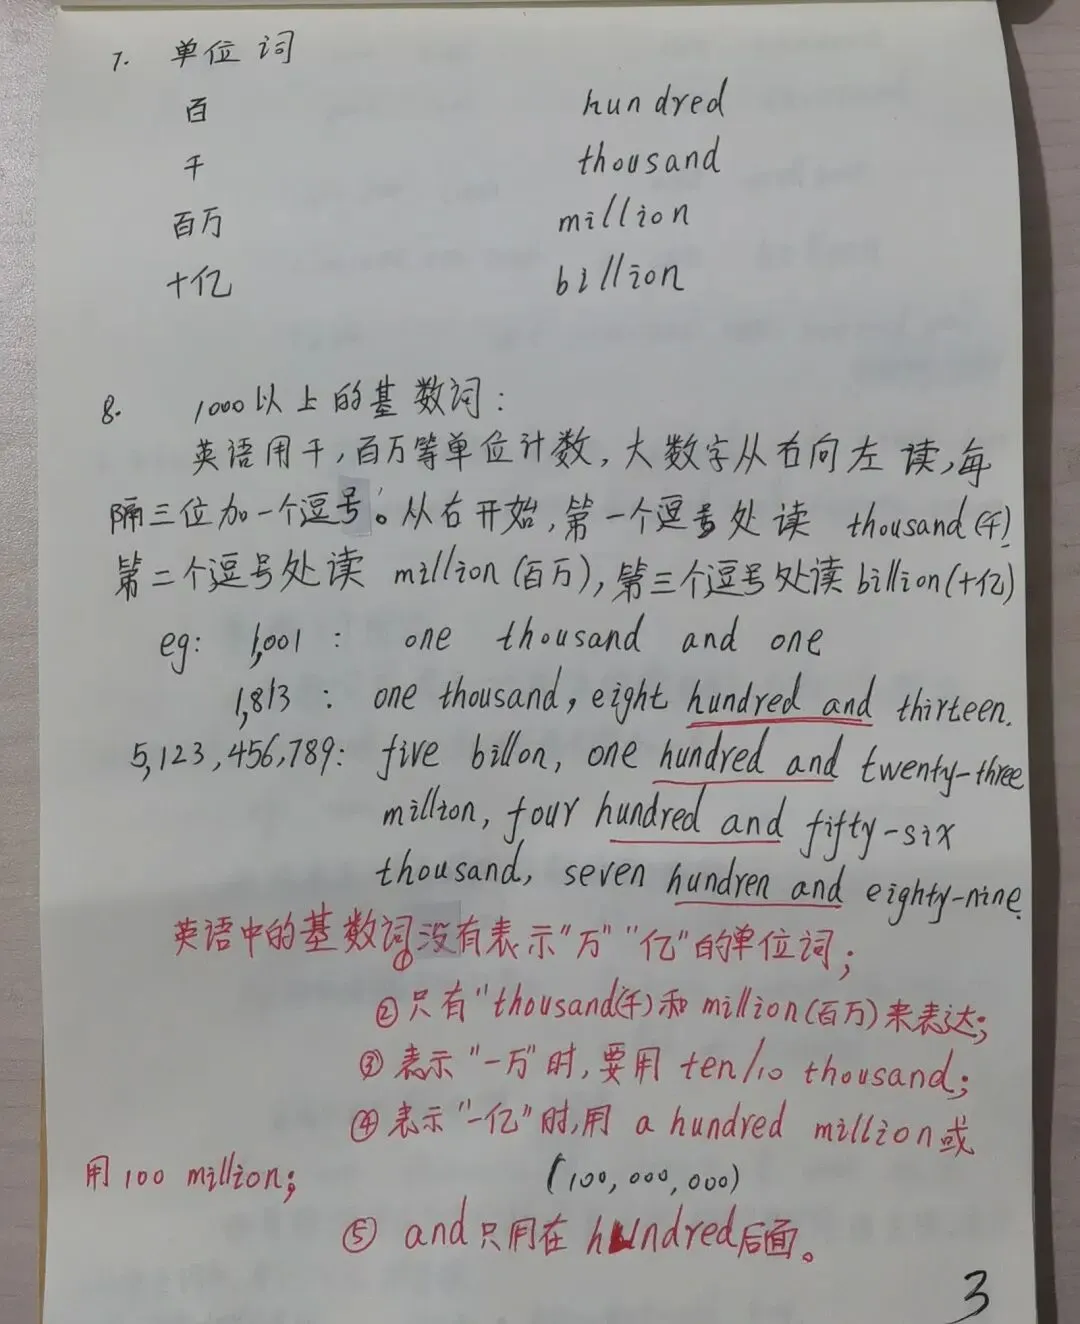 7. 单位词
百 hundred
千 thousand
百万 million
十亿 billion
8. 1000以上的基数词:
英语用千,百万等单位计数,大数字从右向左读,每
隔三位加一个逗号。从右开始,第一个逗号处读 thousand(千)
第二个逗号处读 million(百万),第三个逗号处读billion(十亿)
eg: 1,001 : one thousand and one
1,813 : one thousand, eight hundred and thirteen.
5,123,456,789: five billon, one hundred and twenty-three
million, four hundred and fifty-six
thousand, seven hundren and eighty-nine.
英语中的基数词①没有表示"万""亿"的单位词;
②只有"thousand(千)和million(百万)来表达;
③表示"一万"时,要用 ten/10 thousand;
④表示"一亿"时,用 a hundred million或
用100 million; (100,000,000)
⑤ and只用在hundred后面。
3